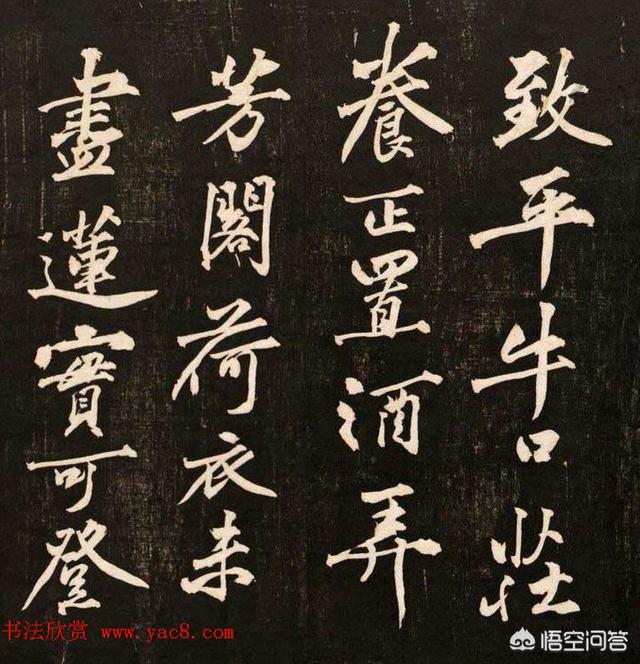 致平牛口莊
養正置酒弄
芳閣荷衣未
盡蓮實可登
书法欣赏 www.yac8.com
悟空问答